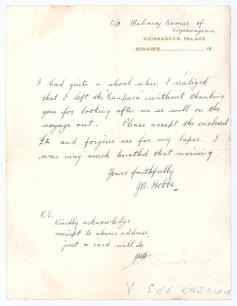 c/o. Maharaj Kumar of
Vizianagram
VIZIANAGRAM PALACE,
BENARES 19
I had quite a shock when I realized
that I left the "Ranpura" without thanking
you for looking after me so well on the
voyage out. Please accept the enclosed
£2 and forgive me for my lapse. I
was very much breathed that morning
Yours faithfully
J B Hobbs
P.S.
Kindly acknowledge
receipt to above address,
just a card will do
JBH
V SEE OVERLEAF